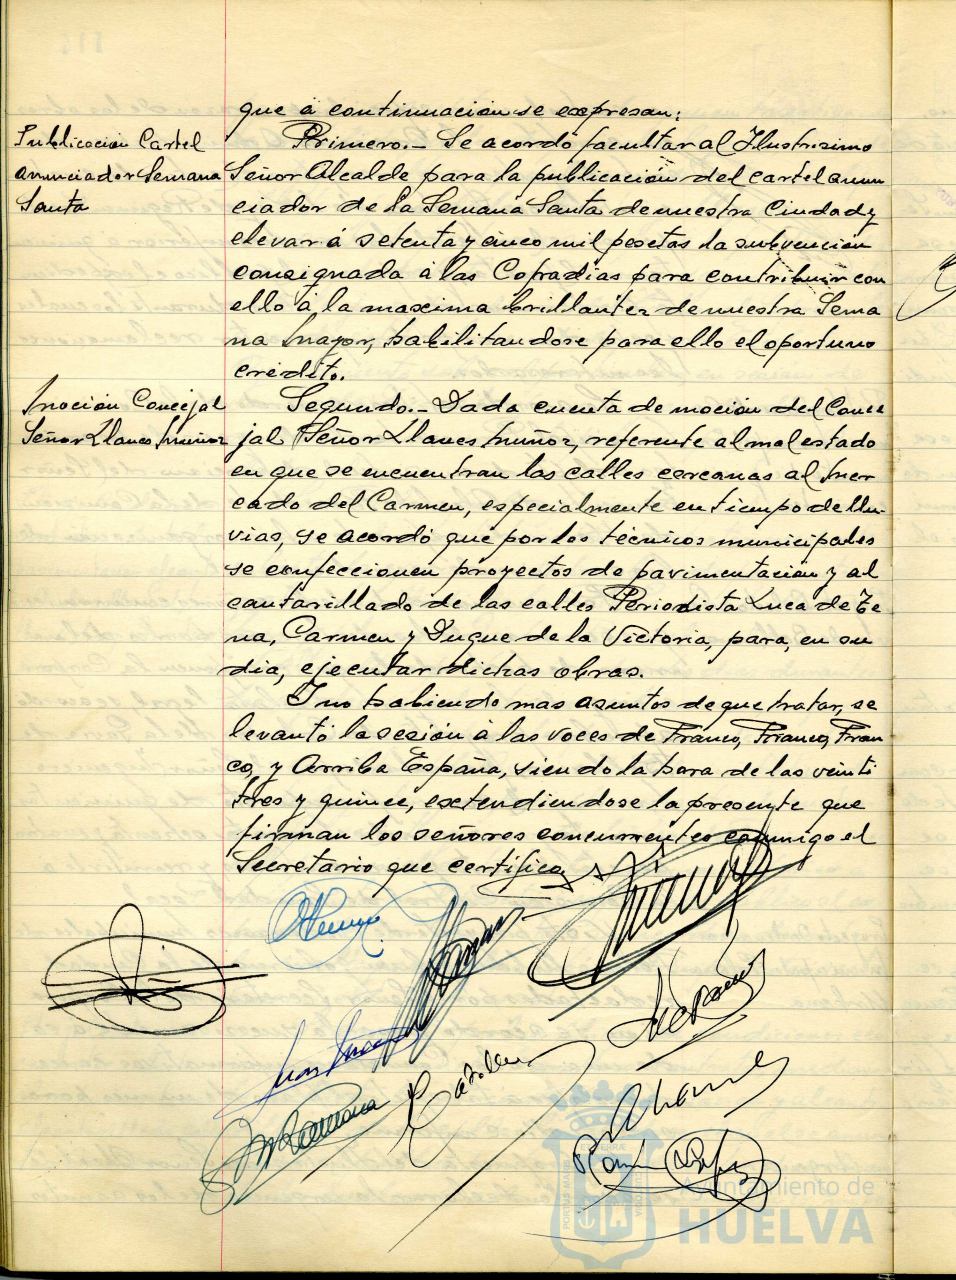 que á continuación se expresan:
Publicación Cartel
anunciador Semana
Santa
Primero.- Se acordó facultar al Ilustrisimo
Señor Alcalde para la publicación del cartel anun
ciador de la Semana Santa de nuestra Ciudad y
elevar á setenta y cinco mil pesetas la subvención
consignada á las Cofradias para contribuir con
ello á la maxima brillantez de nuestra Sema
na Mayor, habilitandose para ello el oportuno
crédito.
Moción Concejal
Señor Llanes Muñoz
Segundo.- Dada cuenta de moción del Conce
jal Señor Llanes Muñoz, referente al mal estado
en que se encuentran las calles cercanas al Mer
cado del Carmen, especialmente en tiempo de llu-
vias, se acordó que por los técnicos municipales
se confeccionen proyectos de pavimentación y al
cantarillado de las calles Periodista Luca de Te
na, Carmen y Duque de la Victoria, para, en su
dia, ejecutar dichas obras.
Y no habiendo mas asuntos de que tratar, se
levantó la sesión á las voces de Franco, Franco, Fran
co, y Arriba España, siendo la hora de las veinti
tres y quince, extendiendose la presente que
firman los señores concurrentes conmigo el
Secretario que certifico
Ramón López
Ayuntamiento de
HUELVA